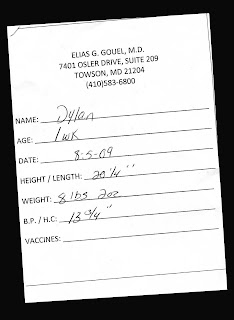 ELIAS G. GOUEL, M.D.
7401 OSLER DRIVE, SUITE 209
TOWSON, MD 21204
(410)583-6800
NAME: Dylan
AGE: 1 wk
DATE: 8-5-09
HEIGHT / LENGTH: 20 1/4"
WEIGHT: 8 lbs 2oz
B.P. / H.C: 13 3/4"
VACCINES: